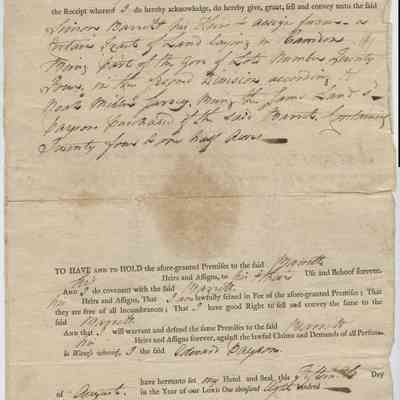 the Receipt whereof I do hereby acknowledge, do hereby give, grant, sell and convey unto the said
Simon Barrett his Heirs & assigns forever a
Certain of Land laying in Camden
Being Part of the Gore of Lots Number Twenty
in the Second Division according
Survey. Being the Same Land
Purchased of the said Barrett. Containing
Twenty four & one half Acres
TO HAVE AND TO HOLD the afore-granted Premises to the said Barrett
his Heirs and Assigns, to his & their Use and Behoof forever.
AND I do covenant with the said Barrett
his Heirs and Assigns, That I am lawfully seized in Fee of the afore-granted Premises; That
they are free of all Incumbrances; That I have good Right to sell and convey the same to the
said Barrett
AND that I will warrant and defend the same Premises to the said Barrett
his Heirs and Assigns forever, against the lawful Claims and Demands of all Persons.
In Witness whereof, I the said Edward
have hereunto set my Hand and Seal, this Fifteenth Day
of August in the Year of our LORD One thousand eight hundred